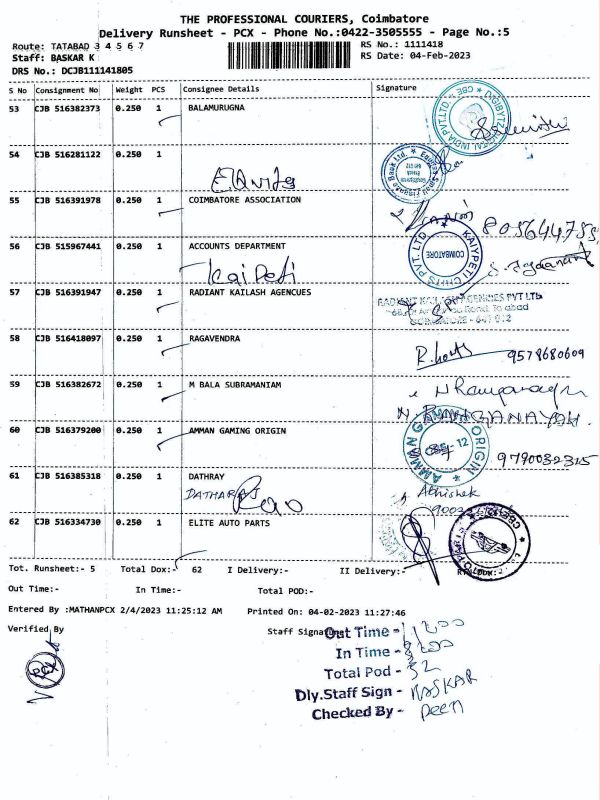 THE PROFESSIONAL COURIERS, Coimbatore
Delivery Runsheet - PCX - Phone No.:0422-3505555 - Page No.:5
Route: TATABAD 3 4 5 6 7
RS No.: 1111418
Staff: BASKAR K
RS Date: 04-Feb-2023
DRS No.: DCJB111141805
S No Consignment No Weight PCS Consignee Details Signature
53 CJB 516382373 0.250 1 BALAMURUGNA
54 CJB 516281122 0.250 1
55 CJB 516391978 0.250 1 COIMBATORE ASSOCIATION
805644755
56 CJB 515967441 0.250 1 ACCOUNTS DEPARTMENT
Kai Peti
KAIYPETI CHITS PVT. LTD
COIMBATORE
57 CJB 516391947 0.250 1 RADIANT KAILASH AGENCUES
RADIANT KAILASH AGENCIES PVT LTD
COIMBATORE - 641 012
58 CJB 516418097 0.250 1 RAGAVENDRA
9578680609
59 CJB 516382672 0.250 1 M BALA SUBRAMANIAM
N. RANGANAYAH.
60 CJB 516379200 0.250 1 AMMAN GAMING ORIGIN
AMMAN GAMING ORIGIN
9790032315
61 CJB 516385318 0.250 1 DATHRAY
Abhishek
62 CJB 516334730 0.250 1 ELITE AUTO PARTS
Tot. Runsheet:- 5 Total Dox:- 62 I Delivery:- II Delivery:-
Out Time:- In Time:- Total POD:-
Entered By :MATHANPCX 2/4/2023 11:25:12 AM Printed On: 04-02-2023 11:27:46
Verified By
Staff Signature
PCX
Out Time - 1200
In Time -
Total Pod - 52
Dly.Staff Sign - BASKAR
Checked By -